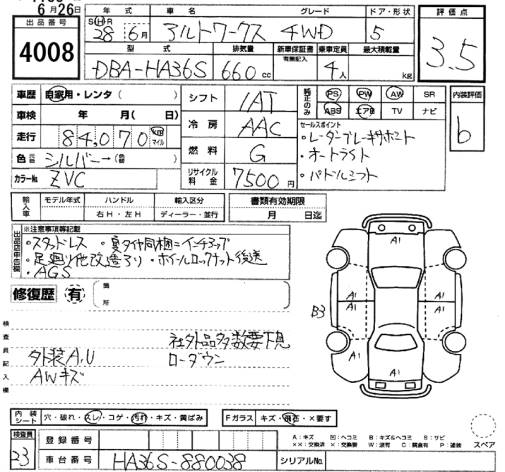 6月26日
出品番号
4008
年式 車名 グレード ドア・形状
S H R
28年 6月 アルトワークス 4WD 5
型式 排気量 新車保証書 有無記入 乗車定員 最大積載量
DBA-HA36S 660cc 4人 kg
評価点
3.5
車歴 自家用・レンタ( )
車検 年 月( 日)
走行 84,070 km マイル
色 シルバー→(色)
カラーNo ZVC
シフト IAT
冷房 AAC
燃料 G
リサイクル料金 7500円
純正のみ PS PW AW SR
ABS エアB TV ナビ
セールスポイント
・レーダーブレーキサポート
・オートライト
・パドルシフト
内装評価
b
輸入車 モデル年式 ハンドル 輸入区分
右H・左H ディーラー・並行
書類有効期限
月 日迄
出品店申告欄
※注意事項等記載
・スタッドレス ・夏タイヤ同梱=インチアップ
・足廻り他改造有り ・ホイールロックナット後送
・AGS
修復歴 有 箇所
検査員記入欄
社外品多数要下見
外装A,U ローダウン
AWキズ
A1
A1 A1
B3
A1 A1
A1
内装シート 穴・破れ・スレ・コゲ・汚れ・キズ・黄ばみ
Fガラス キズ・飛石・×要す
A:キズ 凹:ヘコミ B:キズ&ヘコミ S:サビ
××:交換済 ×:交換要 W:波有 C:腐食有 P:塗装
スペア
検査員
23
登録番号
車台番号 HA36S-880038 シリアルNo.